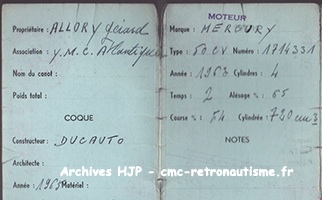 Propriétaire : ALLORY Gérard
Association : Y.M.C. Atlantique
Nom du canot :
Poids total :
COQUE
Constructeur : DUCAUTO
Architecte :
Année : 1965 Matériel :
MOTEUR
Marque : MERCURY
Type : 50 CV Numéro : 1714331
Année : 1963 Cylindres : 4
Temps : 2 Alésage % : 65
Course % : 54 Cylindrée : 720 cm3
NOTES
Archives HJP - cmc-retronautisme.fr